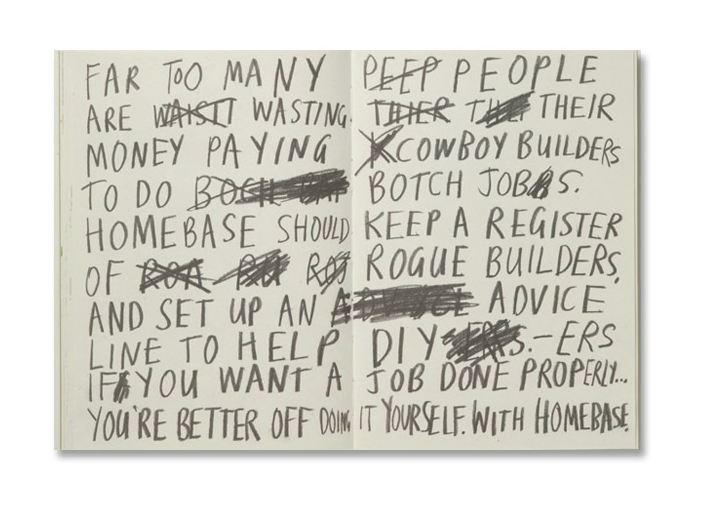 FAR TOO MANY PEEP PEOPLE
ARE WASTING THIER THEIR
MONEY PAYING COWBOY BUILDERS
TO DO BOTCH JOBS.
HOMEBASE SHOULD KEEP A REGISTER
OF ROGUE BUILDERS,
AND SET UP AN ADVICE
LINE TO HELP DIY-ERS
IF YOU WANT A JOB DONE PROPERLY...
YOU'RE BETTER OFF DOING IT YOURSELF. WITH HOMEBASE.